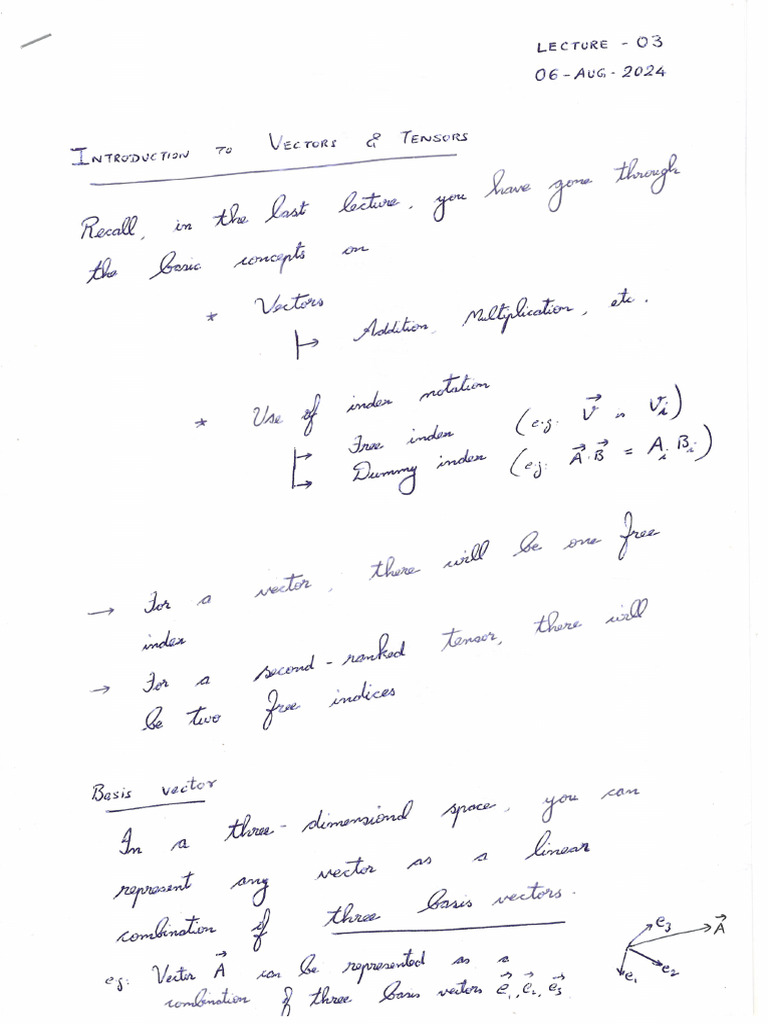 LECTURE - 03
06-AUG-2024
INTRODUCTION TO VECTORS & TENSORS
Recall, in the last lecture, you have gone through
the basic concepts on
* Vectors
↦ Addition, Multiplication, etc.
* Use of index notation
→ Free index (e.g: V⃗ ≈ Vi)
→ Dummy index (e.g: A⃗·B⃗ = Ai Bi)
→ For a vector, there will be one free
index
→ For a second-ranked tensor, there will
be two free indices
Basis vector
In a three-dimensional space, you can
represent any vector as a linear
combination of three basis vectors.
eg: Vector A⃗ can be represented as a
combination of three basis vectors e⃗1, e⃗2, e⃗3
e3
A⃗
e1
e2